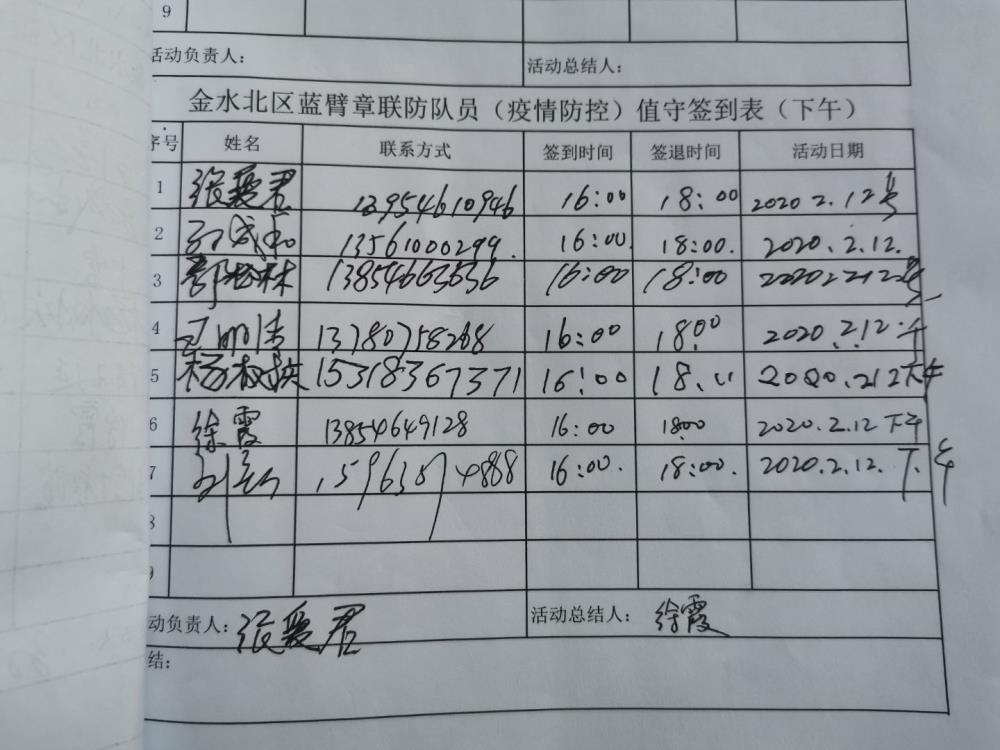 9
活动负责人： 活动总结人：
金水北区蓝臂章联防队员（疫情防控）值守签到表（下午）
序号 姓名 联系方式 签到时间 签退时间 活动日期
1 张爱君 13954610946 16:00 18:00 2020 2.12号
2 13561000299. 16:00. 18:00. 2020.2.12.
3 林 13854663636 16:00 18:00
4 13780758268 16:00 18:00 2020.2.12.午
5 杨 15318367371 16:00 18.00 2020.212下午
6 徐霞 13854649128 16:00 1800 2020.2.12下午
7 刘 15963874888 16:00. 18:00. 2020.2.12.下午
8
9
动负责人：张爱君 活动总结人：徐霞
结：